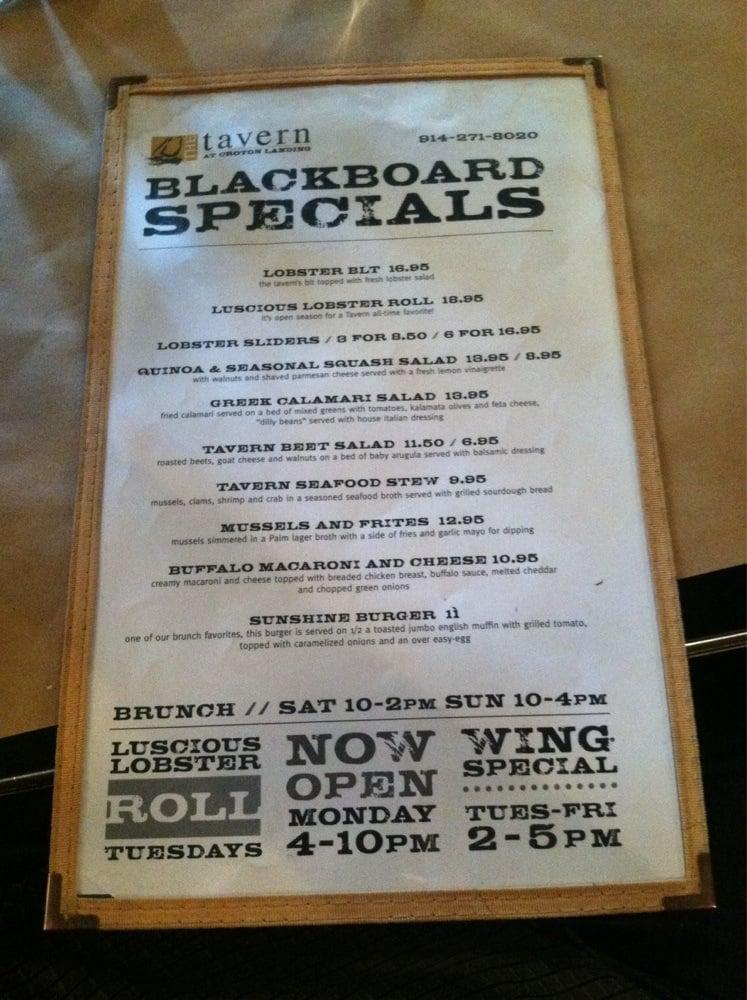 THE tavern
AT CROTON LANDING
914-271-8020
BLACKBOARD
SPECIALS
LOBSTER BLT 16.95
the tavern's blt topped with fresh lobster salad
LUSCIOUS LOBSTER ROLL 18.95
it's open season for a Tavern all-time favorite!
LOBSTER SLIDERS / 3 FOR 8.50 / 6 FOR 16.95
QUINOA & SEASONAL SQUASH SALAD 13.95 / 8.95
with walnuts and shaved parmesan cheese served with a fresh lemon vinaigrette
GREEK CALAMARI SALAD 13.95
fried calamari served on a bed of mixed greens with tomatoes, kalamata olives and feta cheese,
"dilly beans" served with house italian dressing
TAVERN BEET SALAD 11.50 / 6.95
roasted beets, goat cheese and walnuts on a bed of baby arugula served with balsamic dressing
TAVERN SEAFOOD STEW 9.95
mussels, clams, shrimp and crab in a seasoned seafood broth served with grilled sourdough bread
MUSSELS AND FRITES 12.95
mussels simmered in a Palm lager broth with a side of fries and garlic mayo for dipping
BUFFALO MACARONI AND CHEESE 10.95
creamy macaroni and cheese topped with breaded chicken breast, buffalo sauce, melted cheddar
and chopped green onions
SUNSHINE BURGER 11
one of our brunch favorites, this burger is served on 1/2 a toasted jumbo english muffin with grilled tomato,
topped with caramelized onions and an over easy-egg
BRUNCH // SAT 10-2PM SUN 10-4PM
LUSCIOUS
LOBSTER
ROLL
TUESDAYS
NOW
OPEN
MONDAY
4-10PM
WING
SPECIAL
TUES-FRI
2-5PM